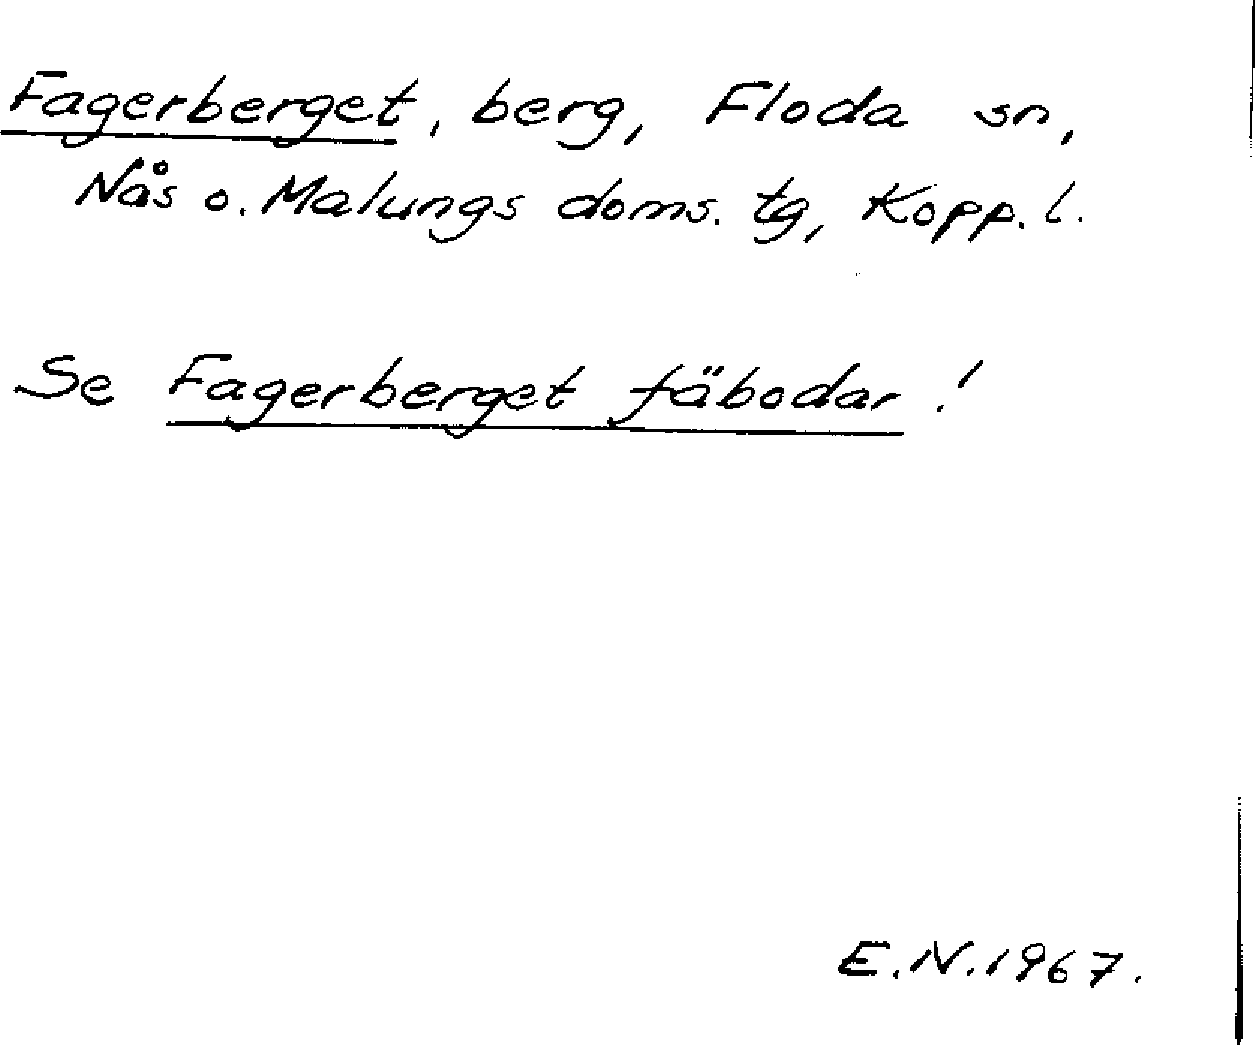 Fagerberget, berg, Floda sn,
Nås o. Malungs doms. tg, Kopp. l.
Se Fagerberget fäbodar!
E.N. 1967.